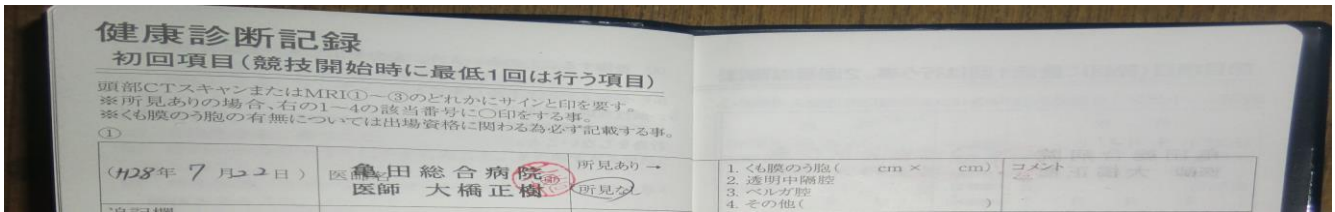 健康診断記録
初回項目(競技開始時に最低1回は行う項目)
頭部CTスキャンまたはMRI①~③のどれかにサインと印を要す。
※所見ありの場合、右の1~4の該当番号に○印をする事。
※くも膜のう胞の有無については出場資格に関わる為必ず記載する事。
①
(H28年 7月22日)
医師名
亀田総合病院
医師 大橋正樹
所見あり→
所見なし
1. くも膜のう胞( cm × cm)
2. 透明中隔腔
3. ベルガ腔
4. その他( )
コメント
追記欄